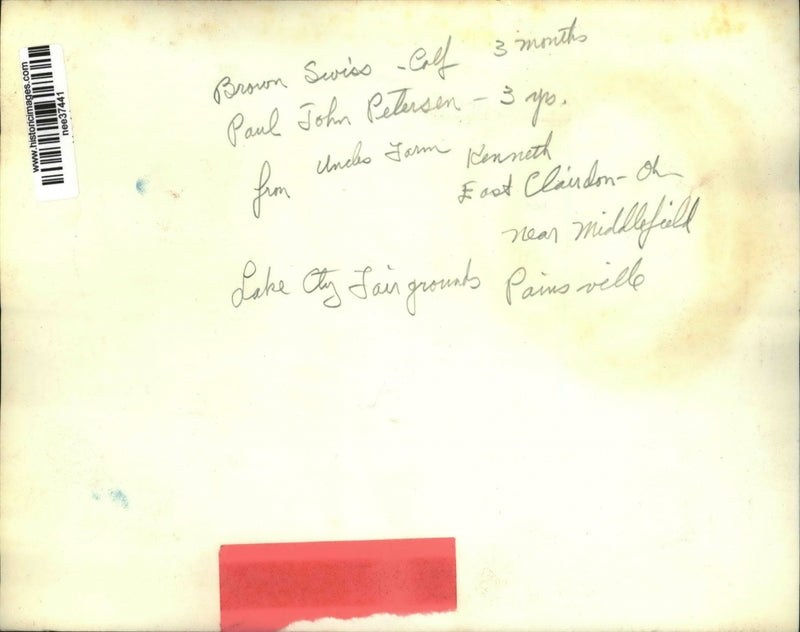 www.historicimages.com
nee37441
Brown Swiss - Calf 3 months
Paul John Petersen - 3 yrs.
from Uncles Farm Kenneth
East Clairdon - Oh
near Middlefield
Lake Cty Fairgrounds Painsville